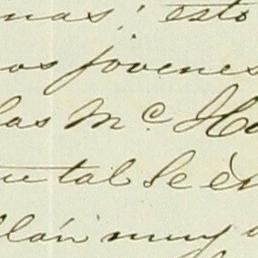 nas; esto
os jovenes
las Mc. He
ue tal le è
llán muy